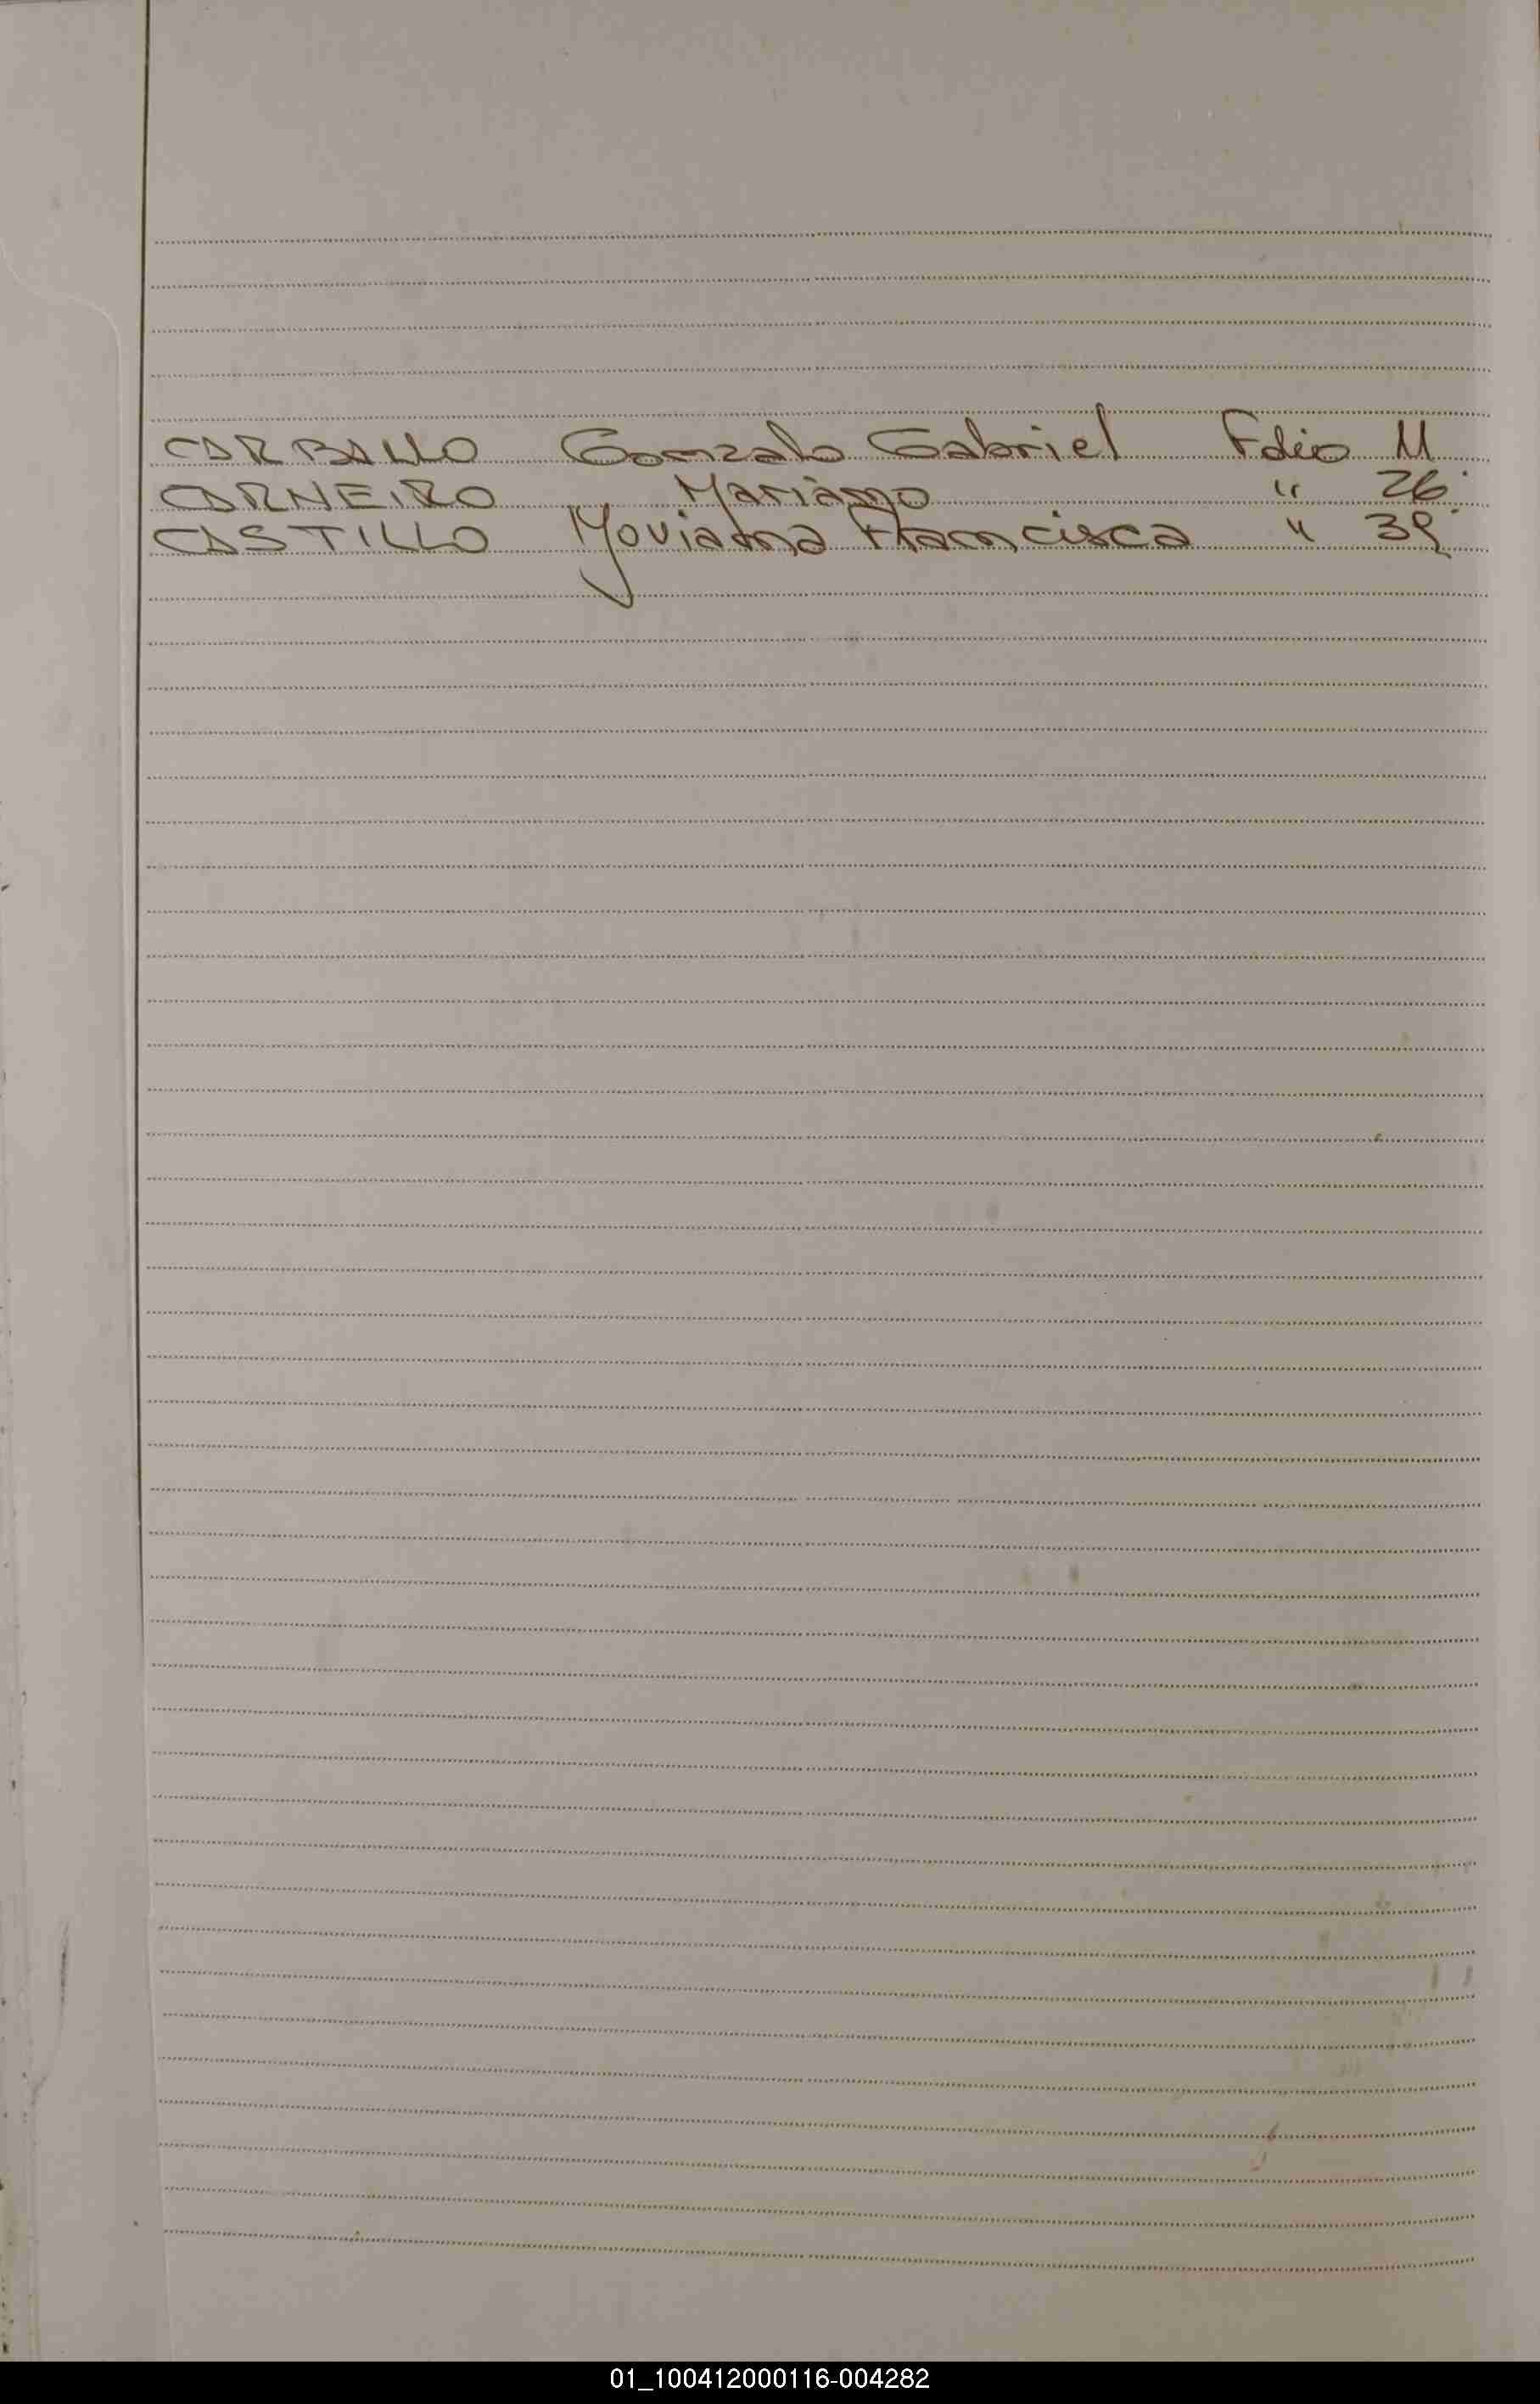 CARBALLO Gonzalo Gabriel Folio 11
CARNEIRO Mariano " 26
CASTILLO Francisca " 39
01_100412000116-004282